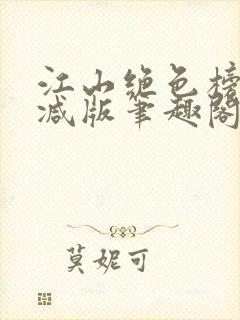 江山绝色榜
减版笔趣阁
莫妮可